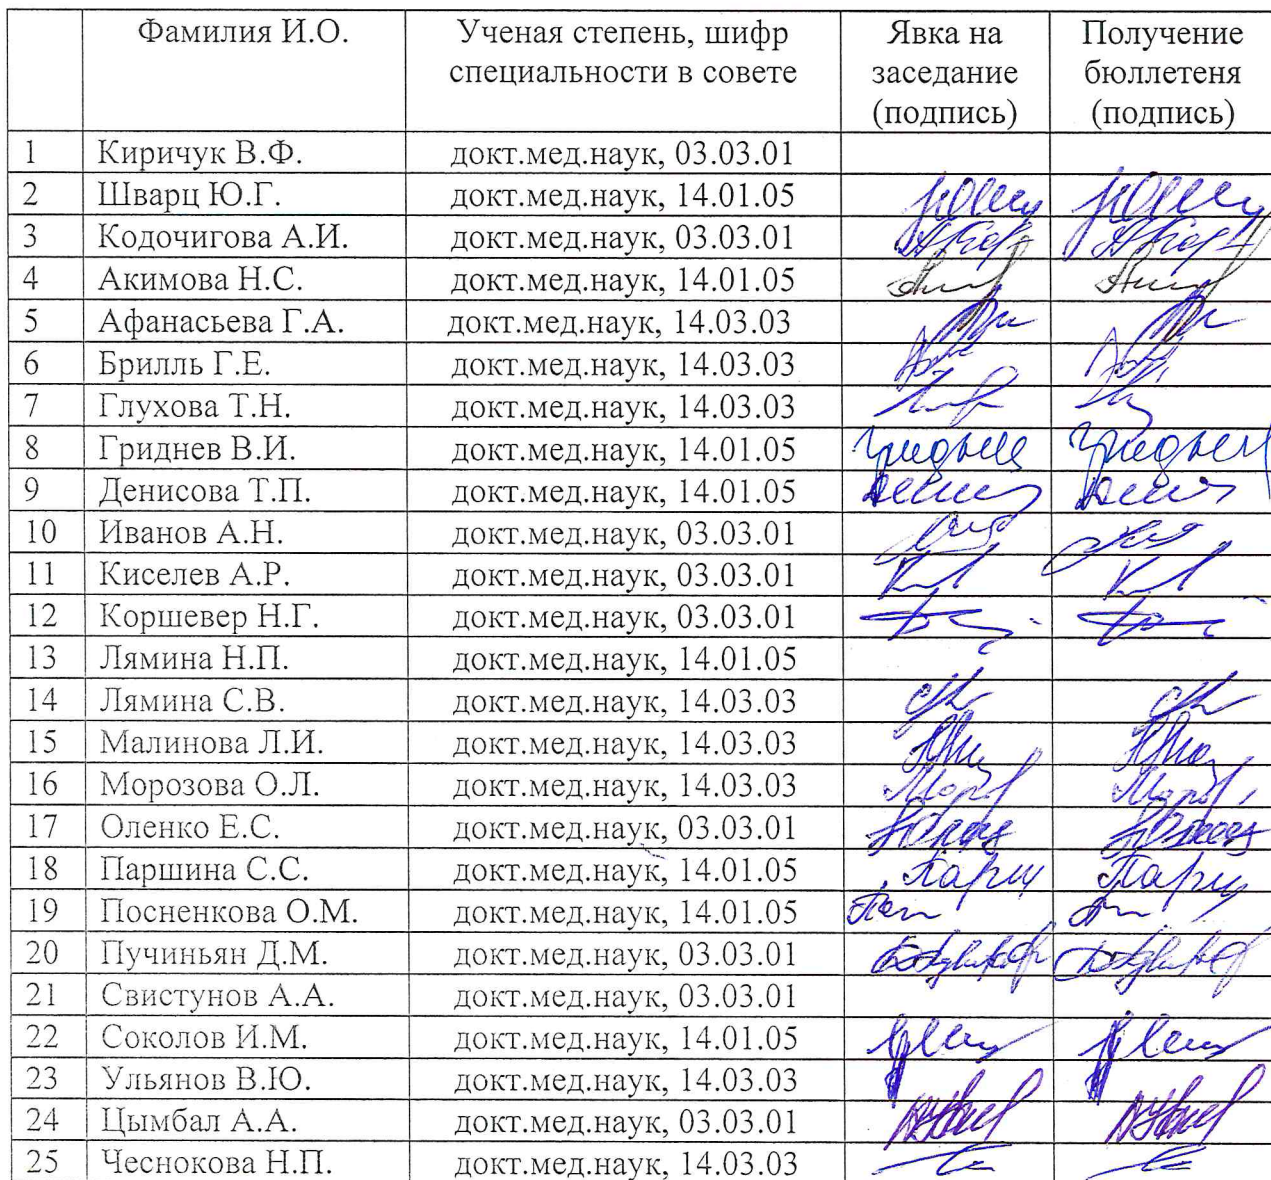 Фамилия И.О. Ученая степень, шифр Явка на Получение
специальности в совете заседание бюллетеня
(подпись) (подпись)
1 Киричук В.Ф. докт.мед.наук, 03.03.01
2 Шварц Ю.Г. докт.мед.наук, 14.01.05
3 Кодочигова А.И. докт.мед.наук, 03.03.01
4 Акимова Н.С. докт.мед.наук, 14.01.05
5 Афанасьева Г.А. докт.мед.наук, 14.03.03
6 Брилль Г.Е. докт.мед.наук, 14.03.03
7 Глухова Т.Н. докт.мед.наук, 14.03.03
8 Гриднев В.И. докт.мед.наук, 14.01.05
9 Денисова Т.П. докт.мед.наук, 14.01.05
10 Иванов А.Н. докт.мед.наук, 03.03.01
11 Киселев А.Р. докт.мед.наук, 03.03.01
12 Коршевер Н.Г. докт.мед.наук, 03.03.01
13 Лямина Н.П. докт.мед.наук, 14.01.05
14 Лямина С.В. докт.мед.наук, 14.03.03
15 Малинова Л.И. докт.мед.наук, 14.03.03
16 Морозова О.Л. докт.мед.наук, 14.03.03
17 Оленко Е.С. докт.мед.наук, 03.03.01
18 Паршина С.С. докт.мед.наук, 14.01.05
19 Посненкова О.М. докт.мед.наук, 14.01.05
20 Пучиньян Д.М. докт.мед.наук, 03.03.01
21 Свистунов А.А. докт.мед.наук, 03.03.01
22 Соколов И.М. докт.мед.наук, 14.01.05
23 Ульянов В.Ю. докт.мед.наук, 14.03.03
24 Цымбал А.А. докт.мед.наук, 03.03.01
25 Чеснокова Н.П. докт.мед.наук, 14.03.03